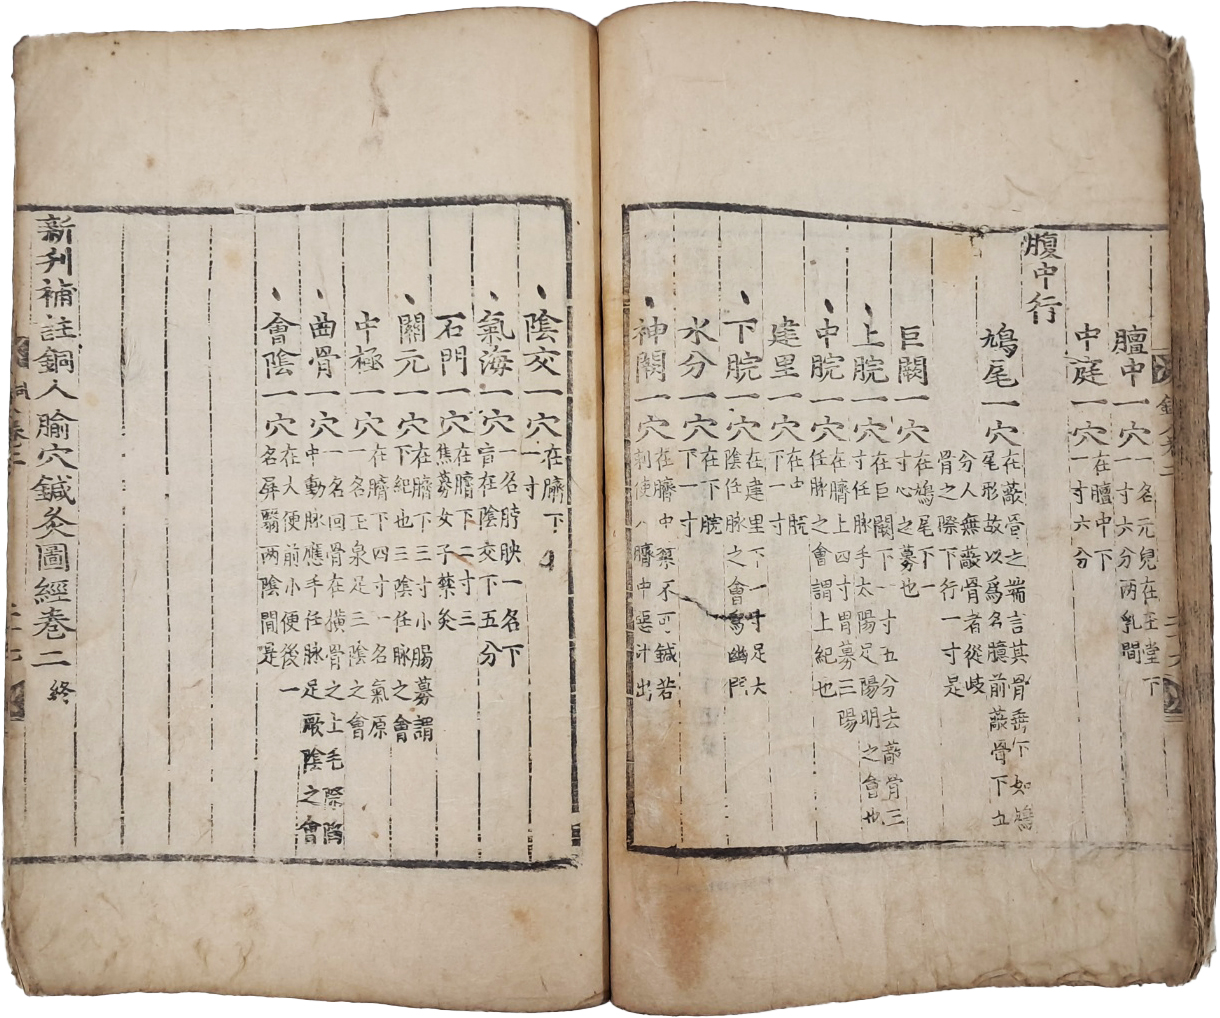 膻中一穴 一名元兒在玉堂下
一寸六分两乳間
中庭一穴 在膻中下
一寸六分
腹中行
鳩尾一穴 在蔽骨之端言其骨垂下如鳩
尾形故以爲名臆前蔽骨下五
分人無蔽骨者從歧
骨之際下行一寸是
巨闕一穴 在鳩尾下一
寸心之募也
上脘一穴 在巨闕下一寸五分去蔽骨三
寸任脉手太陽足陽明之會也
中脘一穴 在臍上四寸胃募三陽
任脉之會謂上紀也
建里一穴 在中脘
下一寸
下脘一穴 在建里下一寸足太
陰任脉之會爲幽門
水分一穴 在下脘
下一寸
神闕一穴 在臍中禁不可鍼若
刺使人臍中惡汁出
陰交一穴 在臍下
一寸
氣海一穴 一名脖胦一名下
肓在陰交下五分
石門一穴 在臍下二寸三
焦募女子禁灸
關元一穴 在臍下三寸小腸募謂
下紀也三陰任脉之會
中極一穴 在臍下四寸一名氣原
一名玉泉足三陰之會
曲骨一穴 一名回骨在横骨之上毛際陷
中動脉應手任脉足厥陰之會
會陰一穴 在大便前小便後一
名屏翳两陰間是
新刋補註銅人腧穴鍼灸圖經卷二 終